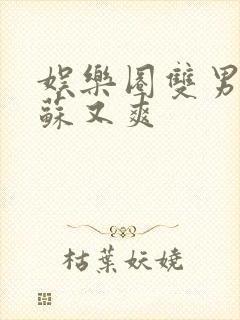 娛樂圈雙男
蘇又爽
枯葉妖嬈